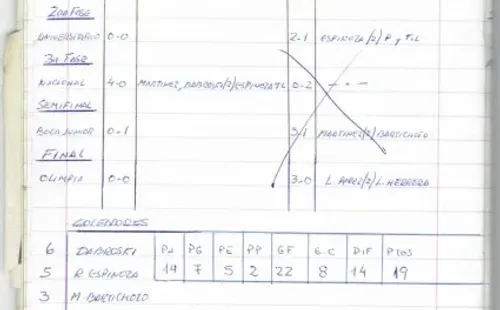 2DA FASE
UNIVERSITARIO 0-0 2-1 ESPINOZA/2/ P y TIL
3A FASE
NACIONAL 4-0 MARTINEZ, DABROSKI/2/ESPINOZA TL 0-2 - · -
SEMIFINAL
BOCA JUNIOR 0-1 3/1 MARTINEZ/2/BARTICHOTO
FINAL
OLIMPIA 0-0 3-0 L. PEREZ/2/L. HERRERA
GOLEADORES
6 DABROSKI PJ PG PE PP GF G.C DIF PTOS
5 R. ESPINOZA 14 7 5 2 22 8 14 19
3 M. BARTICHOTO